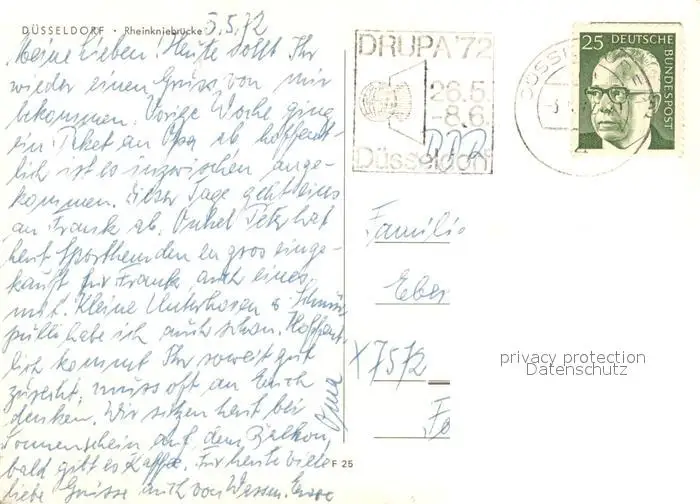 DÜSSELDORF · Rheinkniebrücke
5.5.72
Meine Lieben! Heute sollt Ihr
wieder einen Gruss von mir
bekommen. Vorige Woche ging
ein Paket an Opa ab, hoffent-
lich ist es inzwischen ange-
kommen. Dieser Tage geht eins
an Frank ab. Onkel Fetz hat
heut Sporthemden en gros einge-
kauft, für Frank auch eines
mit. Kleine Unterhosen u.
pulli habe ich auch schon. Hoffent-
lich kommt Ihr soweit gut
zurecht, muss oft an Euch
denken. Wir sitzen heut bei
Sonnenschein auf dem Balkon,
bald gibt es Kaffee. Für heute viele
liebe Grüsse auch von Eure
Oma
F 25
DRUPA '72
26.5.
-8.6.
Düsseldorf
DDR
DÜSSE
25 DEUTSCHE
BUNDESPOST
Familie
Eber
X 7572
Fo
privacy protection
Datenschutz